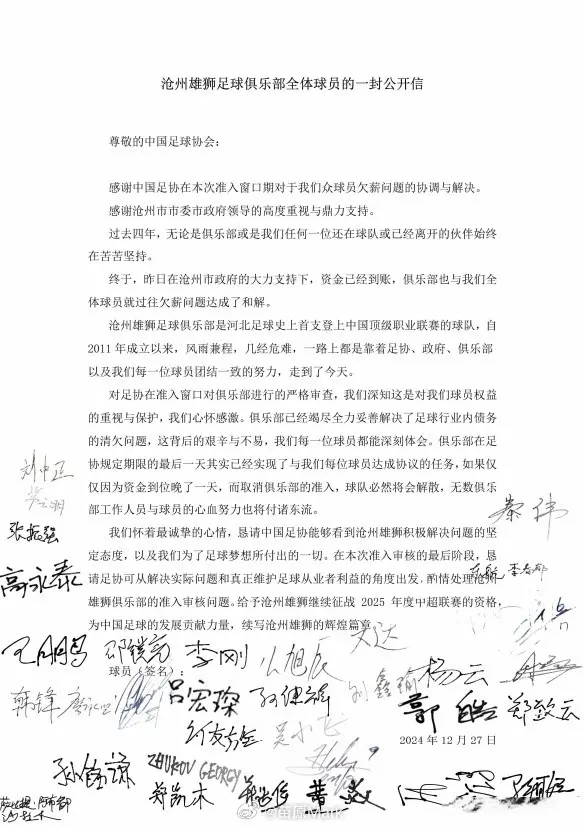 沧州雄狮足球俱乐部全体球员的一封公开信
尊敬的中国足球协会：
感谢中国足协在本次准入窗口期对于我们众球员欠薪问题的协调与解决。
感谢沧州市市委市政府领导的高度重视与鼎力支持。
过去四年，无论是俱乐部或是我们任何一位还在球队或已经离开的伙伴始终
在苦苦坚持。
终于，昨日在沧州市政府的大力支持下，资金已经到账，俱乐部也与我们全
体球员就过往欠薪问题达成了和解。
沧州雄狮足球俱乐部是河北足球史上首支登上中国顶级职业联赛的球队，自
2011年成立以来，风雨兼程，几经危难，一路上都是靠着足协、政府、俱乐部
以及我们每一位球员团结一致的努力，走到了今天。
对足协在准入窗口对俱乐部进行的严格审查，我们深知这是对我们球员权益
的重视与保护，我们心怀感激。俱乐部已经竭尽全力妥善解决了足球行业内债务
的清欠问题，这背后的艰辛与不易，我们每一位球员都能深刻体会。俱乐部在足
协规定期限的最后一天其实已经实现了与我们每位球员达成协议的任务，如果仅
仅因为资金到位晚了一天，而取消俱乐部的准入，球队必然将会解散，无数俱乐
部工作人员与球员的心血努力也将付诸东流。
我们怀着最诚挚的心情，恳请中国足协能够看到沧州雄狮积极解决问题的坚
定态度，以及我们为了足球梦想所付出的一切。在本次准入审核的最后阶段，恳
请足协可从解决实际问题和真正维护足球从业者利益的角度出发，酌情处理沧州
雄狮俱乐部的准入审核问题。给予沧州雄狮继续征战 2025 年度中超联赛的资格，
为中国足球的发展贡献力量，续写沧州雄狮的辉煌篇章。
球员（签名）：
张振强
秦伟
高永泰
李刚
文达
杨云
吕宏琛
孙健祥
刘鑫瑜
郭皓
郑致云
吴小飞
2024 年 12 月 27 日
ZHUKOV GEORGY
郑凯木